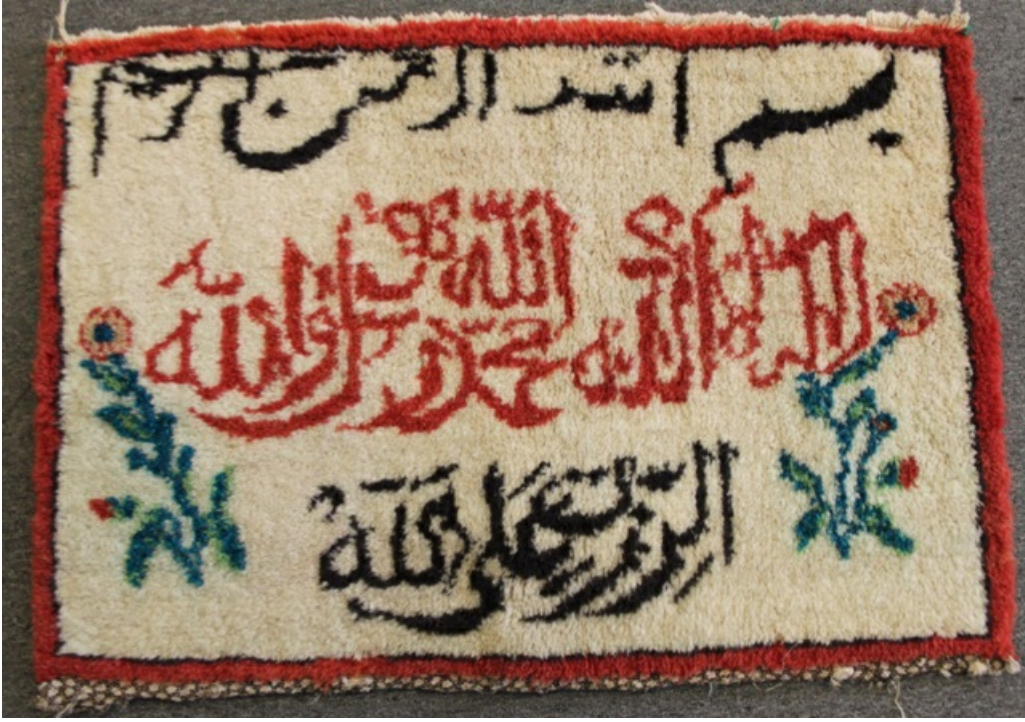 بسم الله الرحمن الرحيم
لا إله إلا الله محمد رسول الله
الرزق على الله